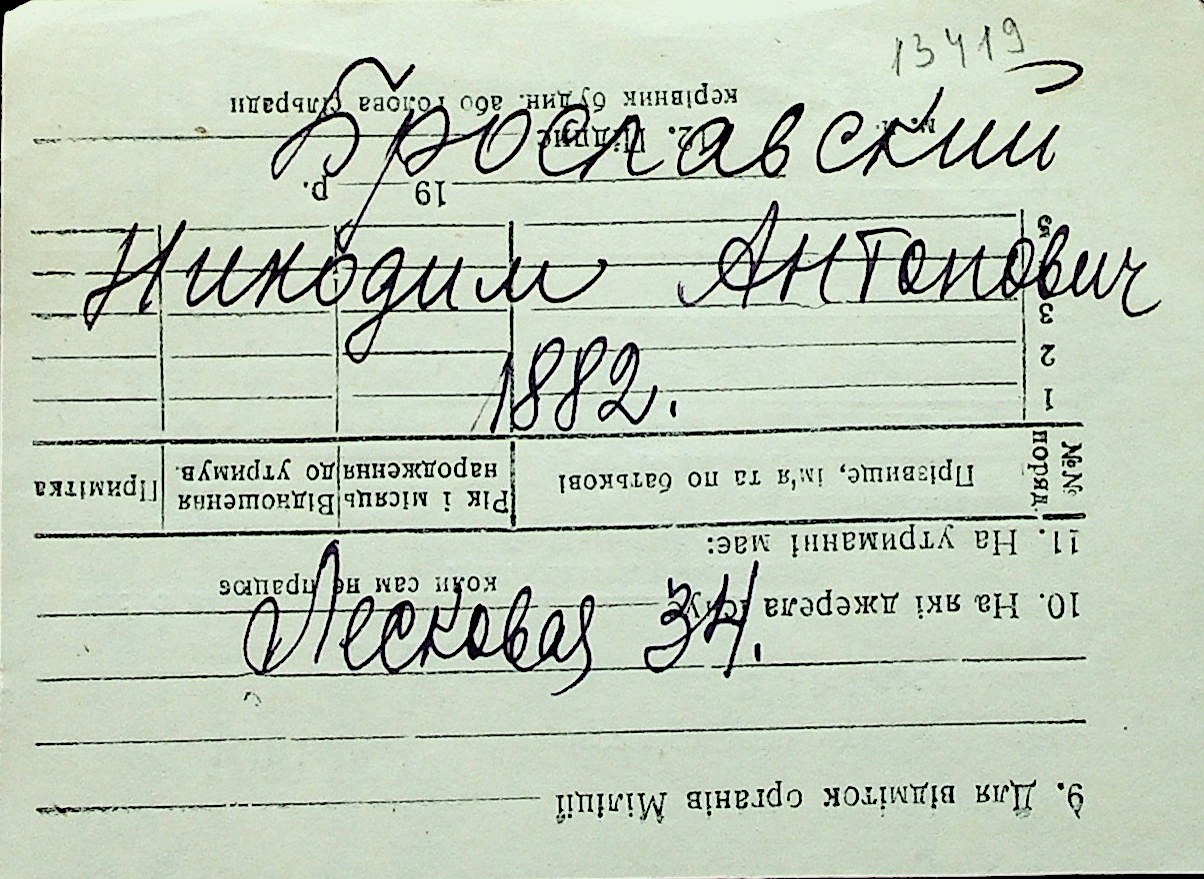 13419
Брославский
Никодим Антонович
1882.
Лесковая 34.
9. Для відміток органів Міліції
10. На які джерела існує
коли сам не працює
11. На утриманні має:
№№ поряд.
Прізвище, ім'я та по батькові
Рік і місяць народження
Відношення до утримув.
Примітка
1
2
3
5
19 р.
12. Підпис
керівник будин. або голова сільради